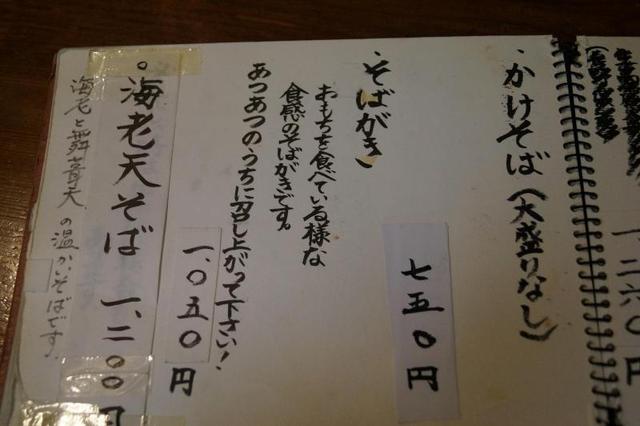 一、二六〇円
・かけそば（大盛りなし）
七五〇円
・そばがき
おもちを食べている様な
食感のそばがきです。
あつあつのうちに召し上がって下さい！
一、〇五〇円
。海老天そば 一、二〇〇円
海老と舞茸天、の温かいそばです。